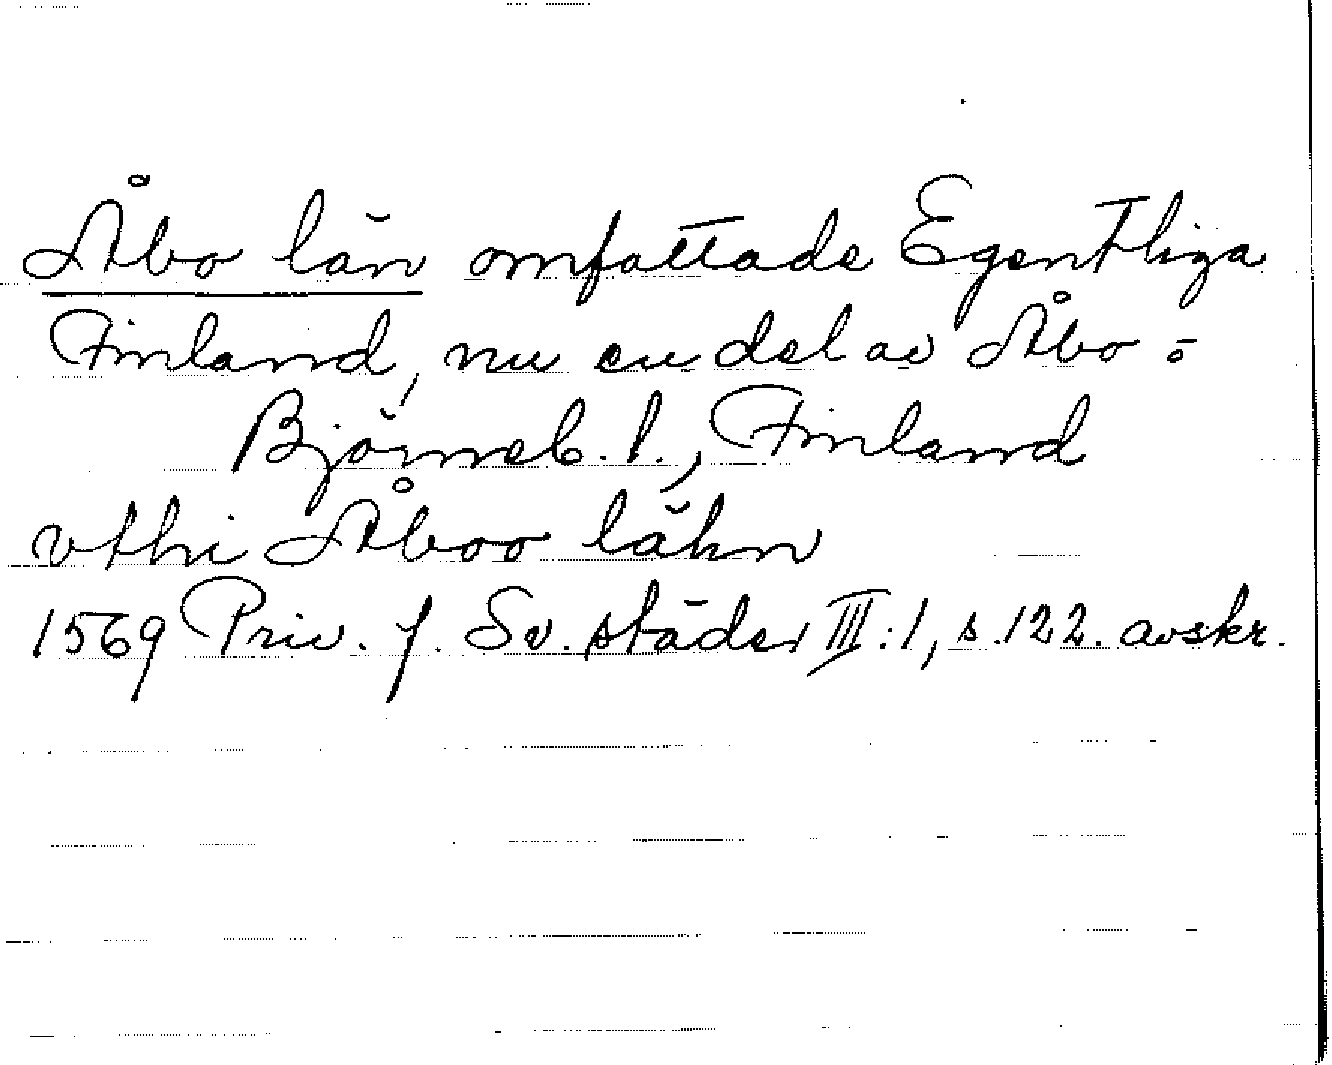 Åbo län omfattade Egentliga
Finland, nu en del av Åbo-
Björneb. l., Finland
vthi Åboo lähn
1569 Priv. f. Sv. städer III:1, s.122. avskr.